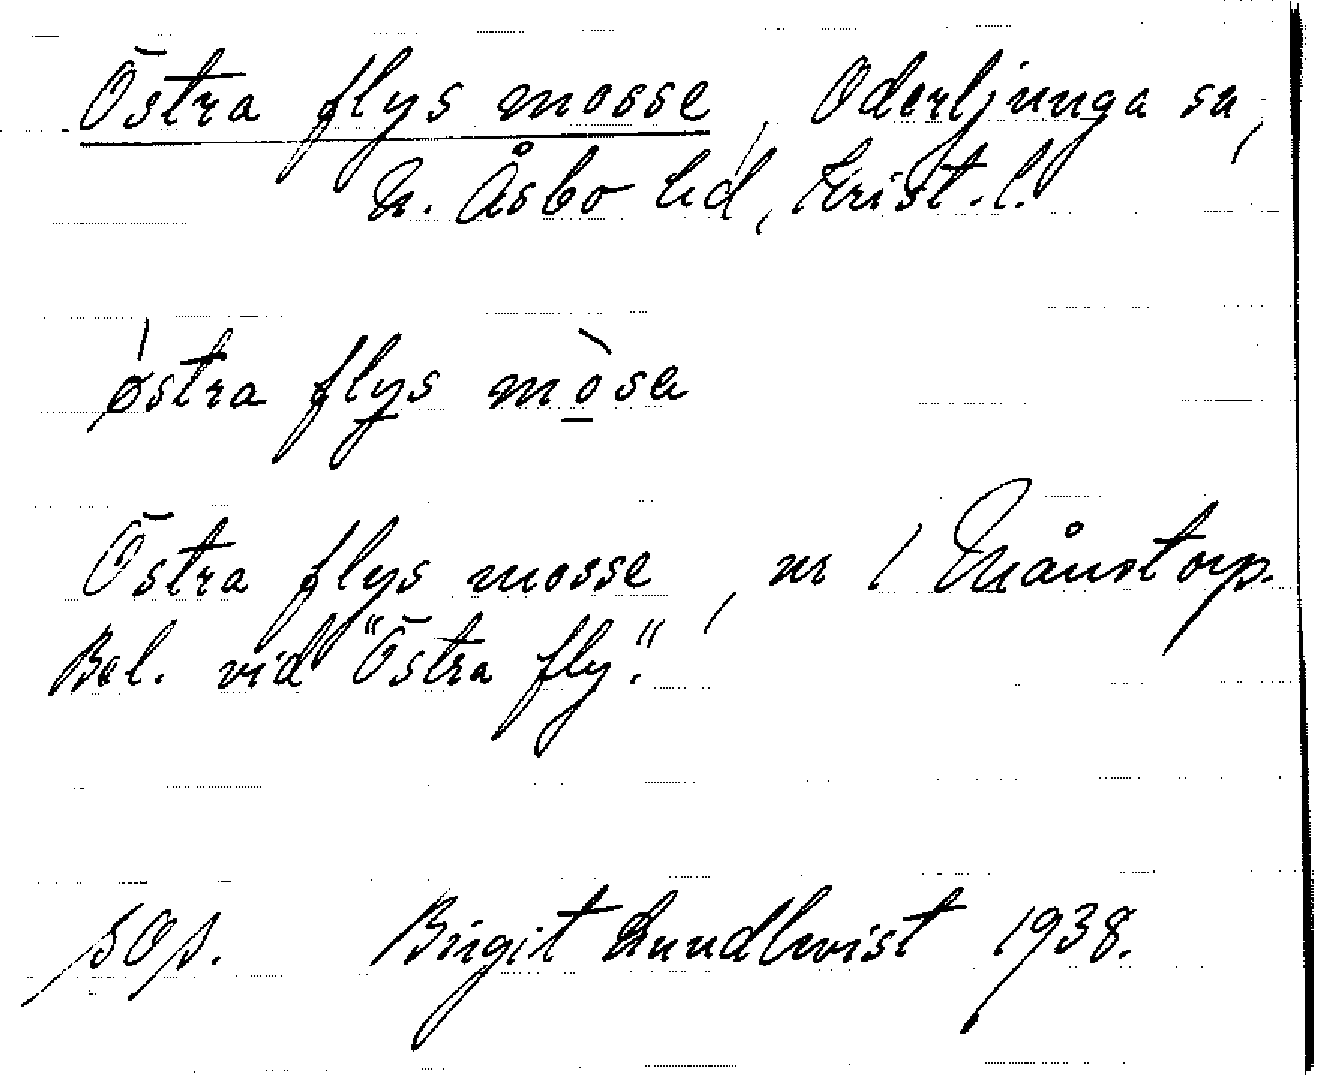 Östra flys mosse, Oderljunga sn,
N. Åsbo hd, Krist. l.
østra flys mòse
Östra flys mosse, nr 1 Månstorp.
Bel. vid "Östra fly".
Birgit Lundkvist 1938.